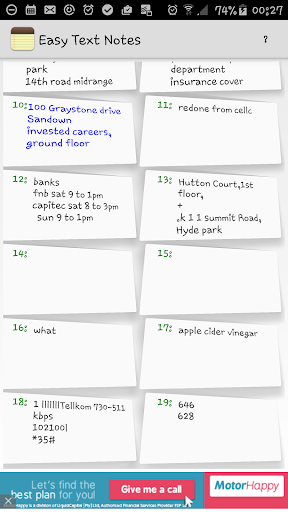 74% 00:27
Easy Text Notes ?
park
14th road midrange
department
insurance cover
10: 100 Graystone drive
Sandown
invested careers,
ground floor
11: redone from cellc
12: banks
fnb sat 9 to 1pm
capitec sat 8 to 3pm
sun 9 to 1pm
13: Hutton Court,1st
floor,
+
,k 1 1 summit Road,
Hyde park
14:
15:
16: what
17: apple cider vinegar
18: 1 |||||||Tellkom 730-511
kbps
102100|
*35#
19: 646
628
Let's find the
best plan for you!
Give me a call
MotorHappy